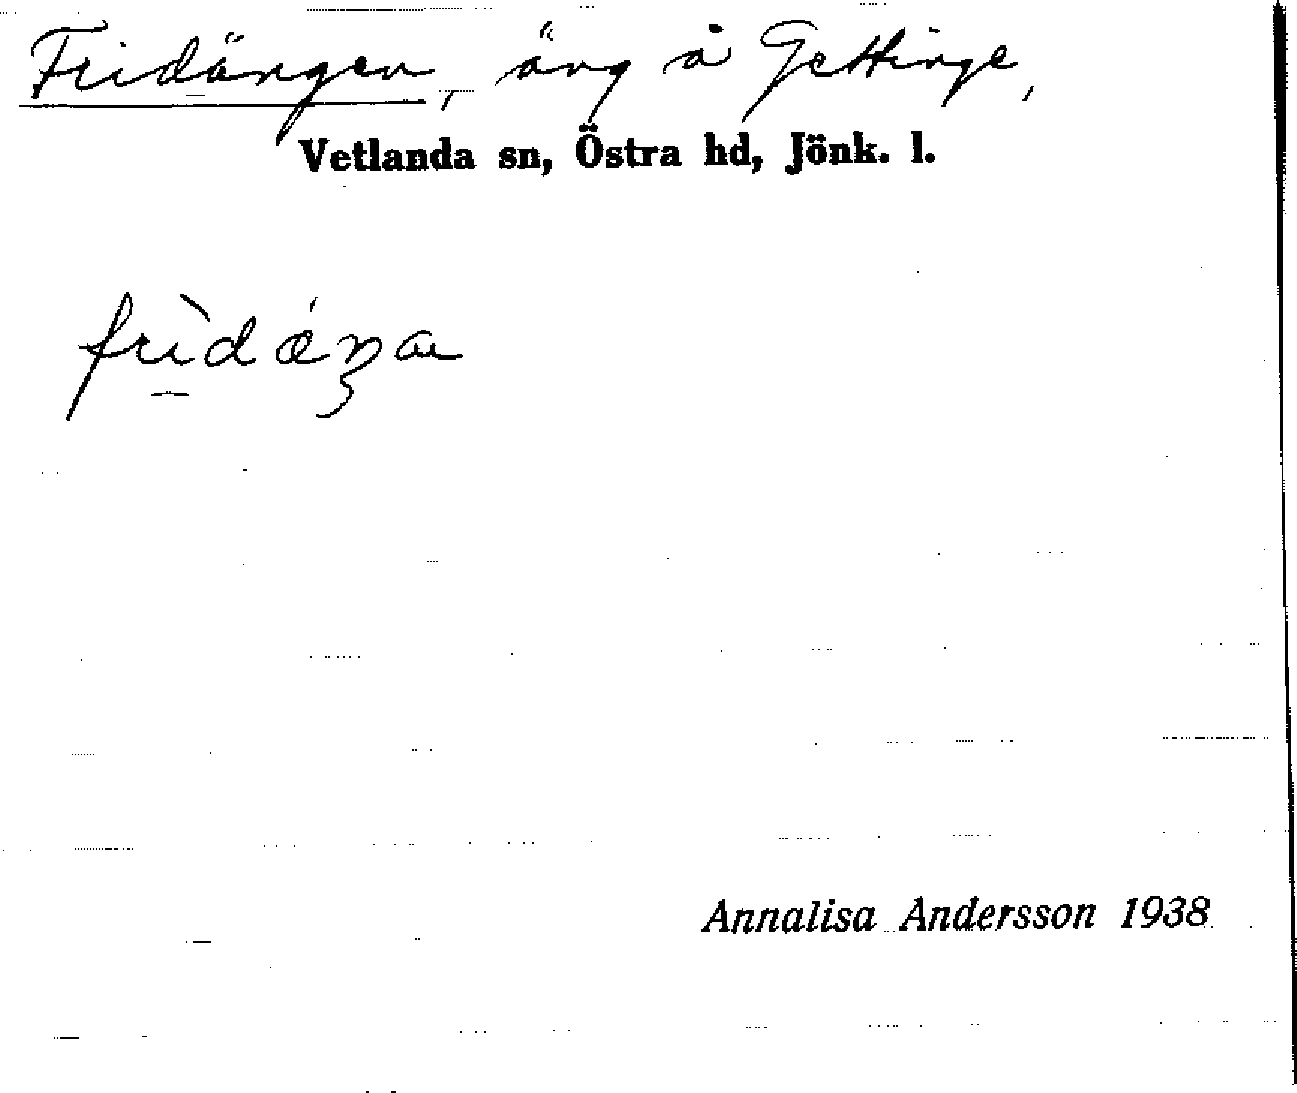 Fridängen, äng å Gettinge,
Vetlanda sn, Östra hd, Jönk. l.
frìdǽŋan
Annalisa Andersson 1938